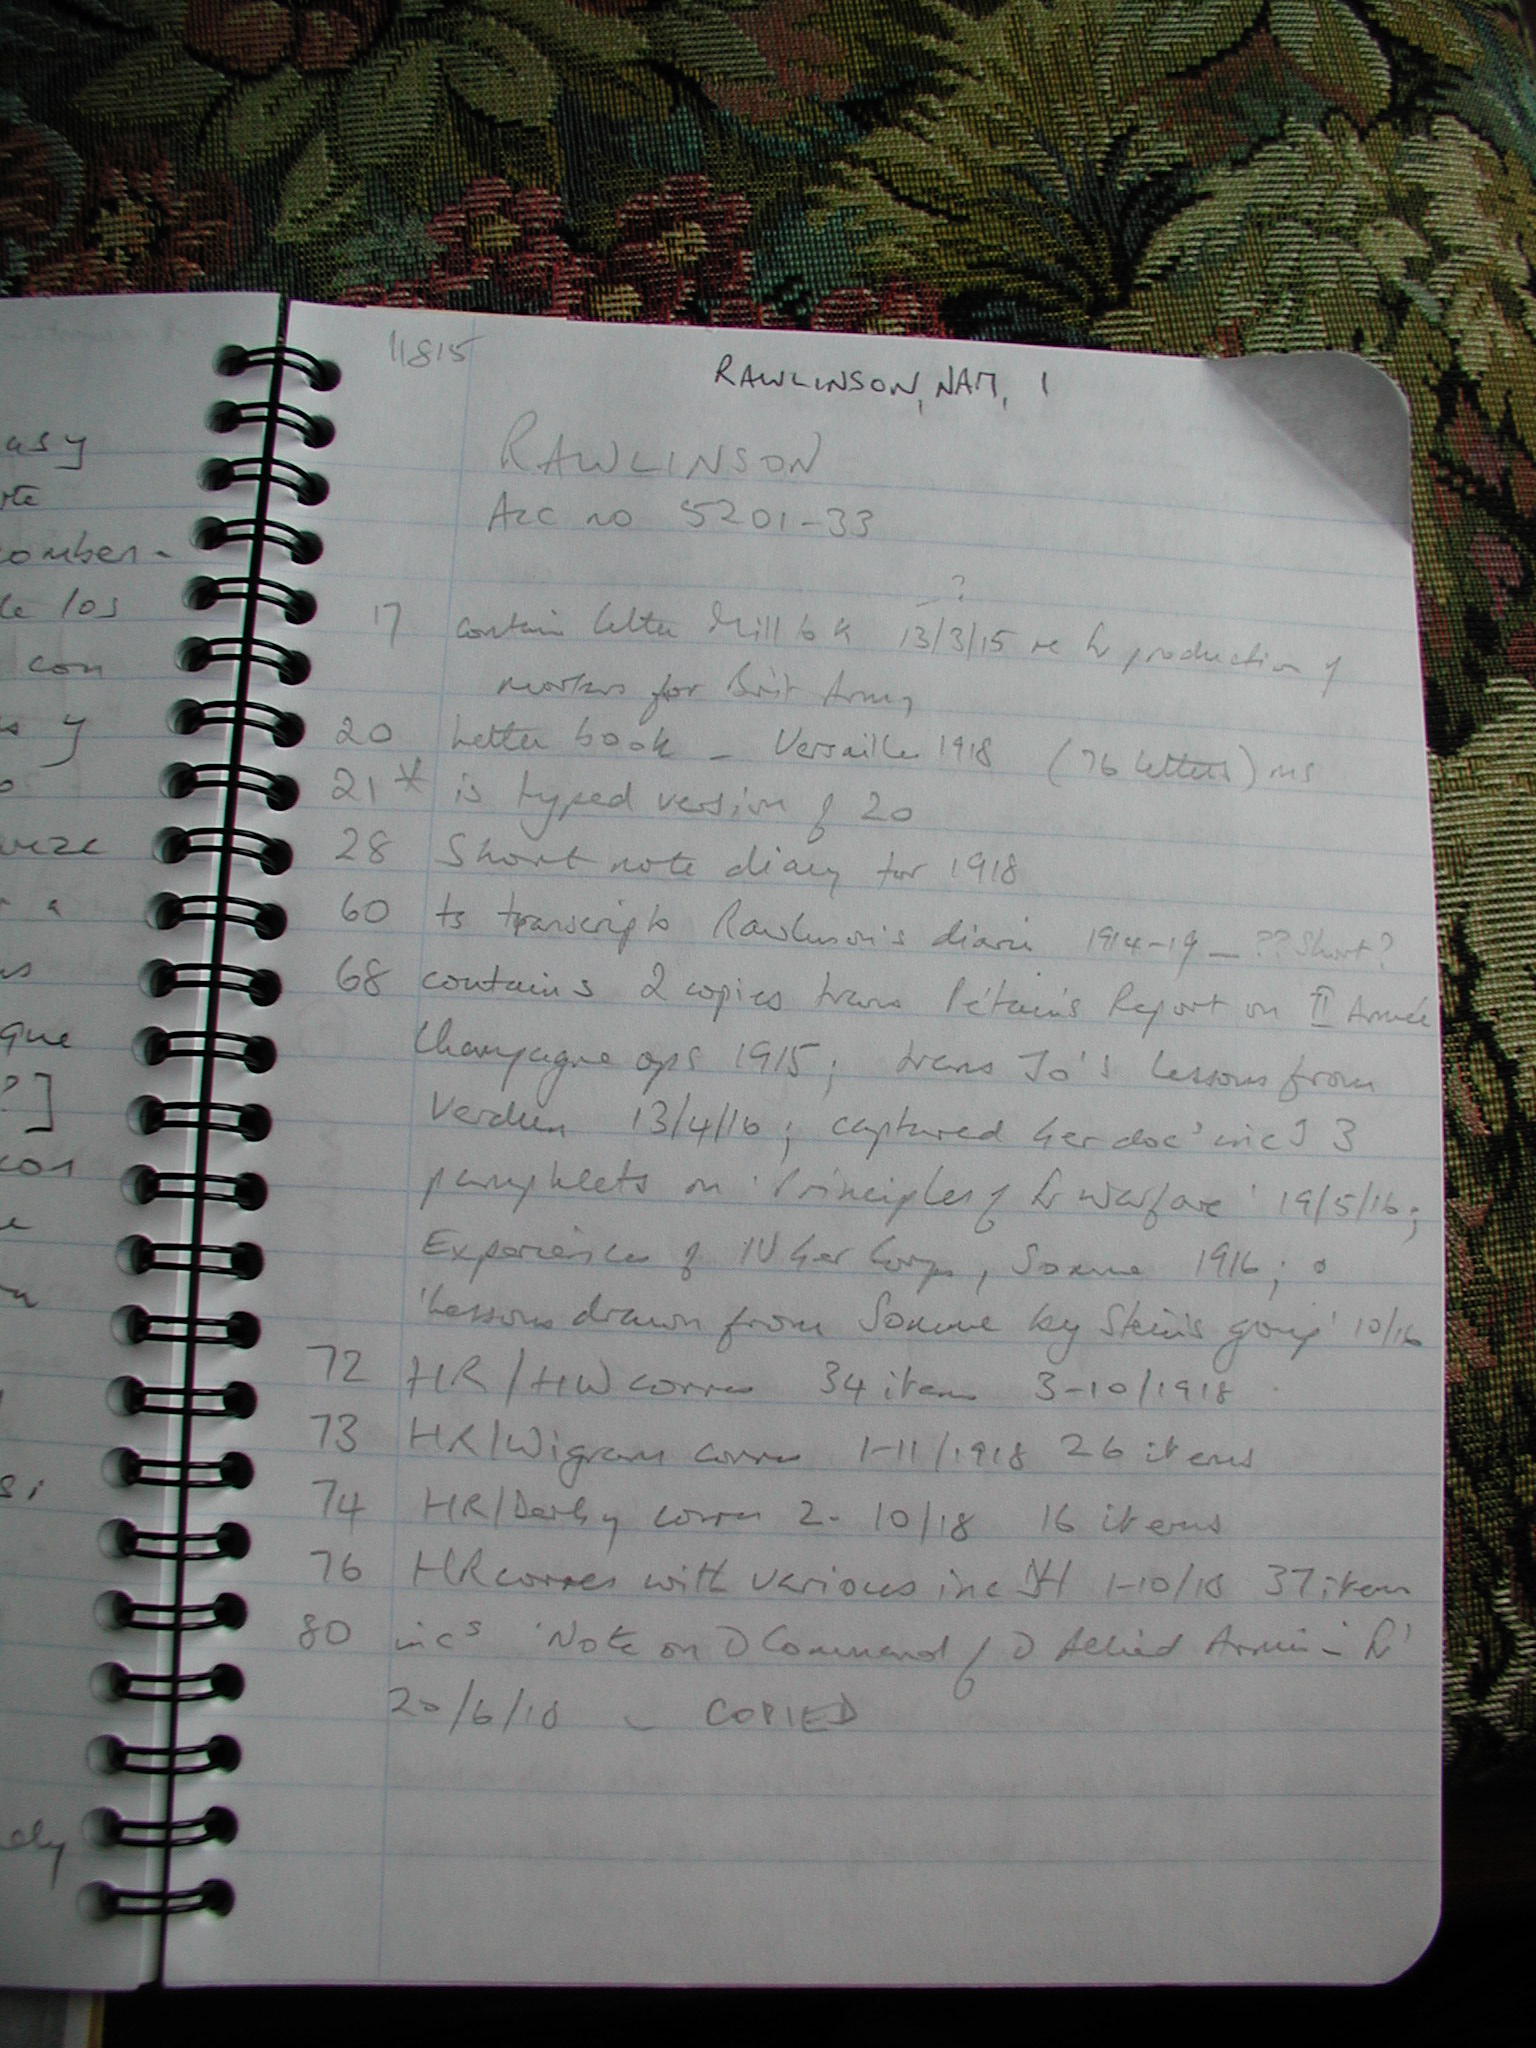 asy
omber-
le los
con
y
que
?]
con
ely
11815
RAWLINSON, NAM, 1
RAWLINSON
Acc no 5201-33
?
17 contain letter Mill to K 13/3/15 re Fr production of
mortars for Brit Army
20 Letter book - Versailles 1918 (76 letters) ms
21* is typed version of 20
28 Short note diary for 1918
60 ts transcripts Rawlinson's diaries 1914-19 - ??Short?
68 contains 2 copies trans Pétain's Report on II Armée
Champagne ops 1915; trans Jo's Lessons from
Verdun 13/4/16; captured Ger docs incl 3
pamphlets on 'Principles of Tr Warfare' 19/5/16;
Experiences of IV Ger Corps, Somme 1916; &
'Lessons drawn from Somme by Stein's group' 10/16
72 HR/HW corres 34 items 3-10/1918
73 HR/Wigram corres 1-11/1918 26 items
74 HR/Derby corres 2-10/18 16 items
76 HR corres with various inc DH 1-10/18 37 items
80 incs 'Note on Command of Allied Armies - Fr'
20/6/18 - COPIED